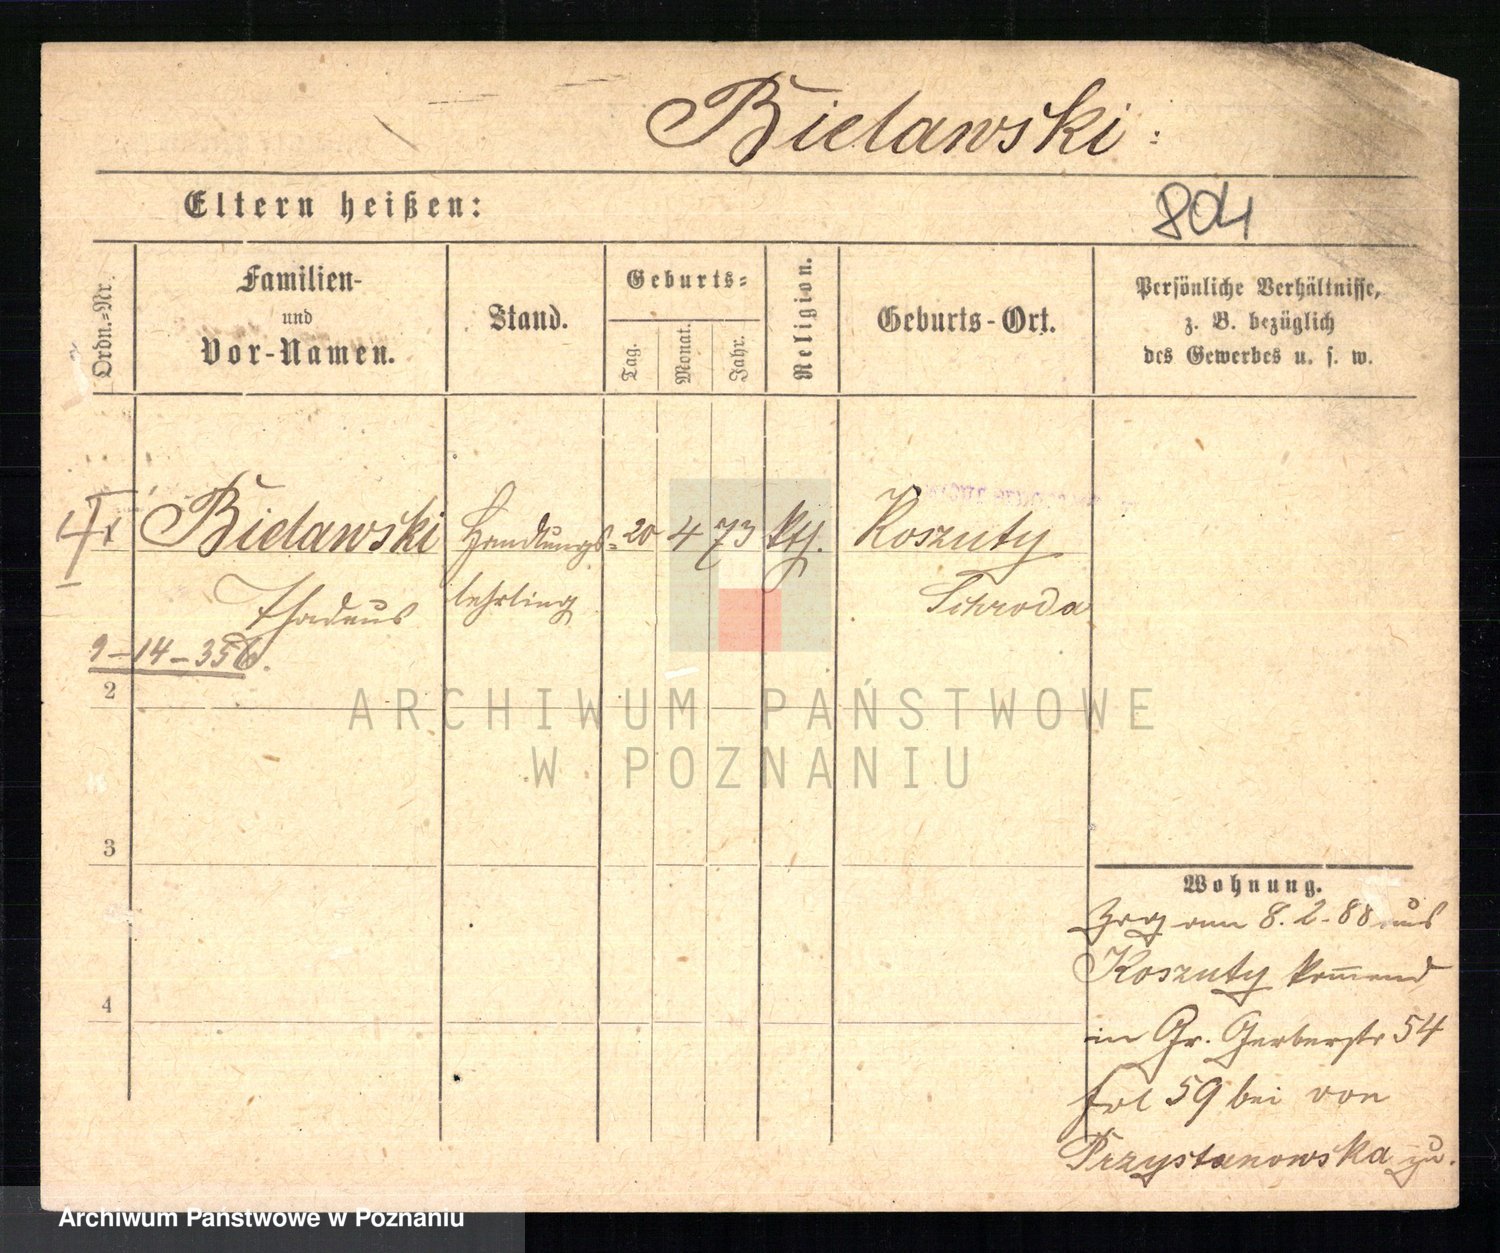 Bielawski
Eltern heißen:
804
Ordn.-Nr.
Familien-
und
Vor-Namen.
Stand.
Geburts-
Tag.
Monat.
Jahr.
Religion.
Geburts-Ort.
Persönliche Verhältnisse,
z. B. bezüglich
des Gewerbes u. s. w.
Bielawski Handlungs- 20 4 73 kth. Koszuty
Thadeus lehrling Schroda
9-14-356.
2
3
4
Wohnung.
Zog am 8.2.88 aus
Koszuty kommend
in Gr. Gerberstr 54
59 bei von
Przystanowska zu.
ARCHIWUM PAŃSTWOWE
W POZNANIU
Archiwum Państwowe w Poznaniu